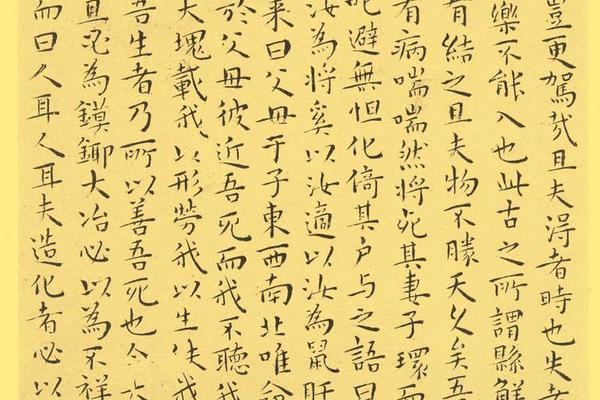 豈更駕哉且夫淂者時也失者
樂不能入也此古之所謂縣解
有結之且夫物不勝天久矣吾
有病喘喘然將死其妻子環而
叱避無怛化倚其户与之語曰
汝為將奚以汝適以汝為鼠肝
来曰父母于子東西南北唯命
於父母彼近吾死而我不聽我
大塊載我以形勞我以生佚我
吾生者乃所以善吾死也今大
且必為鏌鋣大冶必以為不祥
而曰人耳人耳夫造化者必以